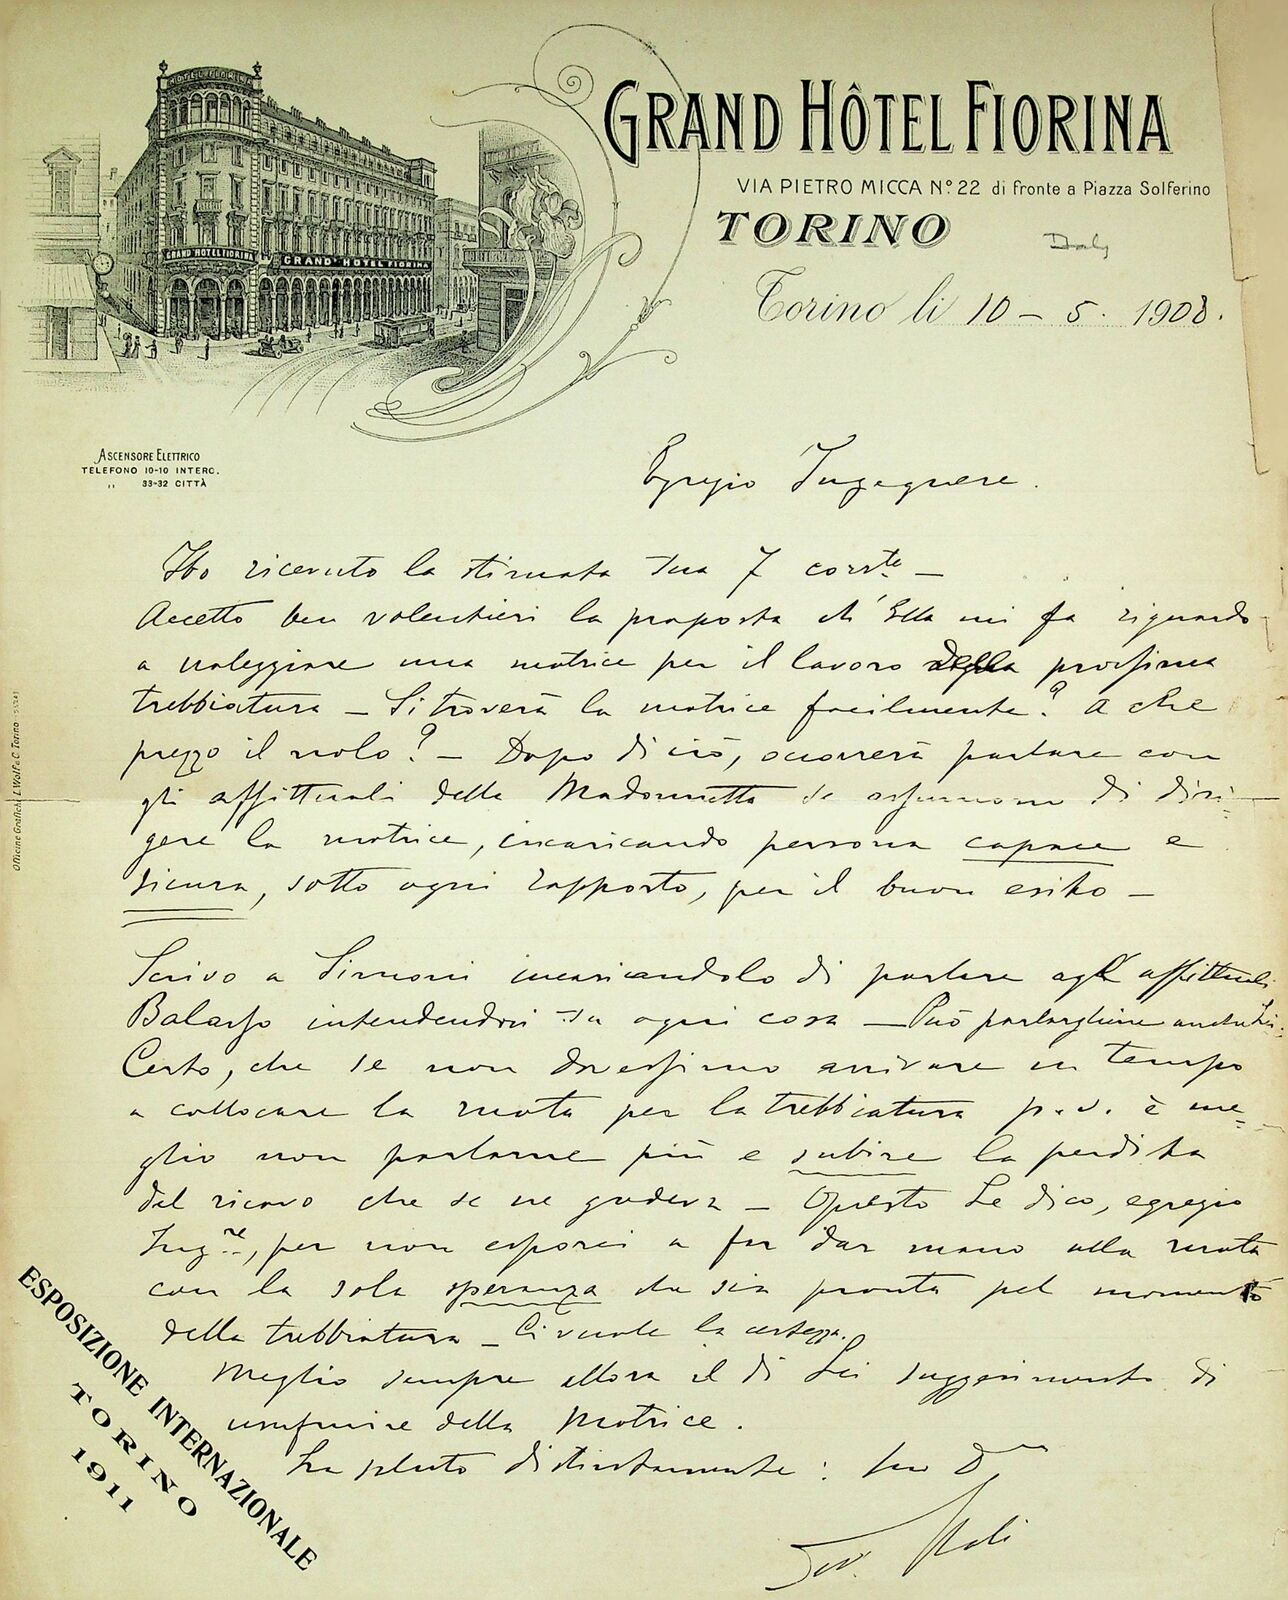 HOTEL FIORINA
GRAND HOTEL FIORINA GRAND HOTEL FIORINA
GRAND HÔTEL FIORINA
VIA PIETRO MICCA Nº 22 di fronte a Piazza Solferino
TORINO
Torino li 10 - 5. 1908.
ASCENSORE ELETTRICO
TELEFONO 10-10 INTERC.
„ 33-32 CITTÀ
Egregio Ingegnere.
Ho ricevuto la stimata sua 7 corrte -
Accetto ben volentieri la proposta ch'Ella mi fa riguardo
a noleggiare una motrice per il lavoro della prossima
trebbiatura - Si troverà la motrice facilmente? A che
prezzo il nolo? - Dopo di ciò, occorrerà parlare con
gli affittuali della Madonnetta se assumono di diri-
gere la motrice, incaricando persona capace e
sicura, sotto ogni rapporto, per il buon esito -
Scrivo a Simoni incaricandolo di parlare agli affittuali
Balasso intendendosi su ogni cosa - Può parlargliene anche Lei.
Certo, che se non dovessimo arrivare in tempo
a collocare la ruota per la trebbiatura p.v. è me-
glio non parlarne più e subire la perdita
del ricavo che se ne godeva - Questo Le dico, egregio
Ingre, per non esporci a far dar mano alla ruota
con la sola speranza che sia pronta pel momento
della trebbiatura - Ci vuole la certezza.
Meglio sempre allora il di Lei suggerimento di
usufruire della motrice.
La saluto distintamente: suo D
Officine Grafiche I. Wolf e C. Torino
ESPOSIZIONE INTERNAZIONALE
TORINO
1911